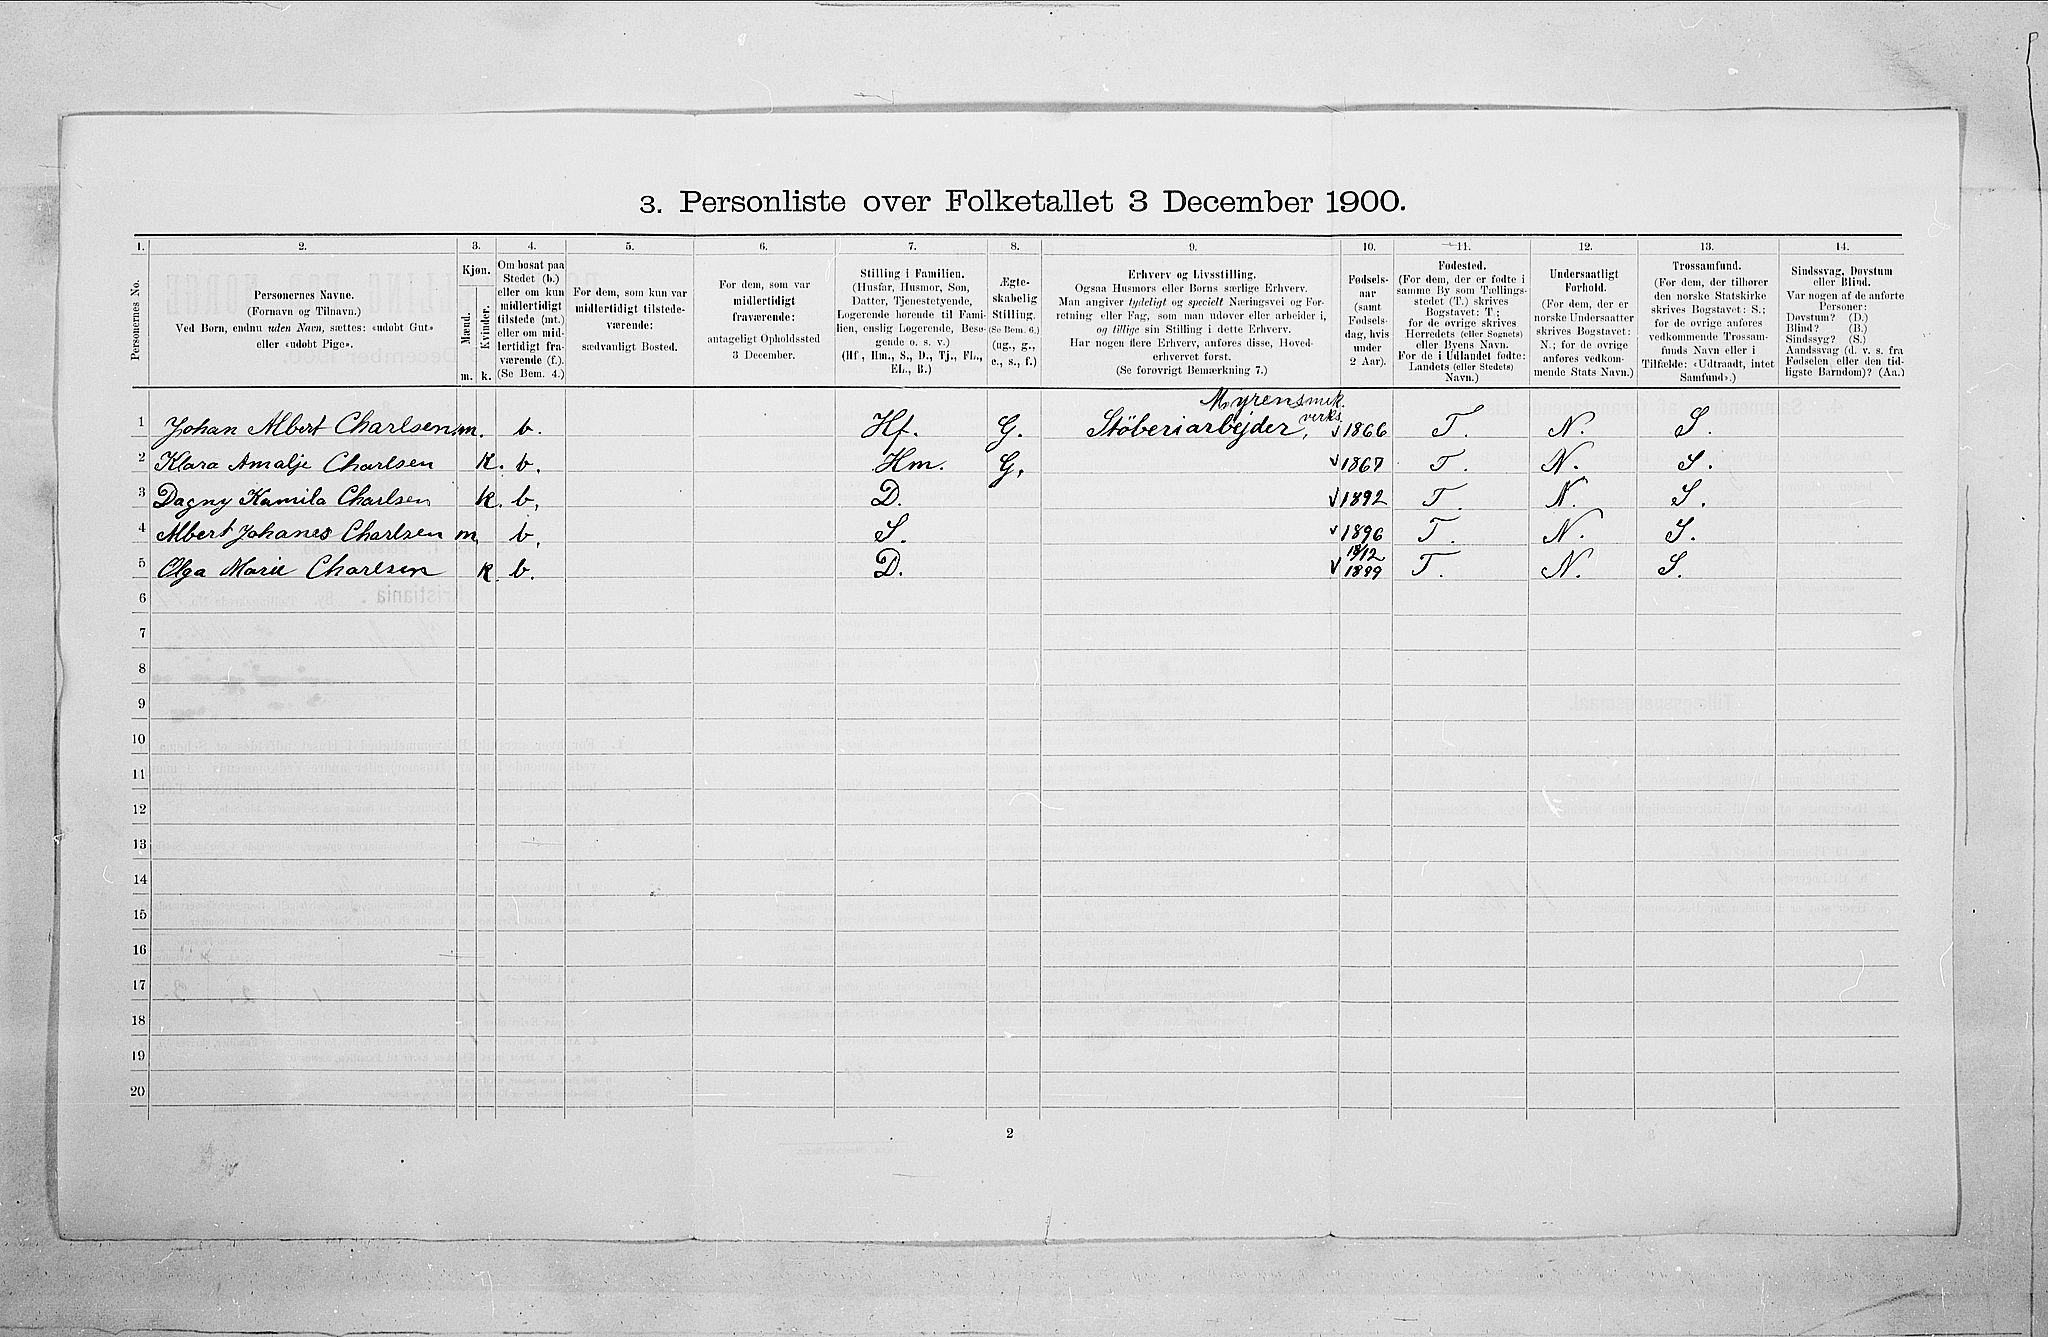 3. Personliste over Folketallet 3 December 1900.
1. 2. 3. 4. 5. 6. 7. 8. 9. 10. 11. 12. 13. 14.
Personernes No.
Personernes Navne.
(Fornavn og Tilnavn.)
Ved Børn, endnu uden Navn, sættes: «udøbt Gut»
eller «udøbt Pige».
Kjøn.
Mænd.
Kvinder.
m. k.
Om bosat paa
Stedet (b.)
eller om kun
midlertidigt
tilstede (mt.)
eller om mid-
lertidigt fra-
værende (f.).
(Se Bem. 4.)
For dem, som kun var
midlertidigt tilstede-
værende:
sædvanligt Bosted.
For dem, som var
midlertidigt
fraværende:
antageligt Opholdssted
3 December.
Stilling i Familien.
(Husfar, Husmor, Søn,
Datter, Tjenestetyende,
Logerende hørende til Fami-
lien, enslig Logerende, Besø-
gende o. s. v.)
(Hf, Hm., S., D., Tj., FL.,
EL., B.)
Ægte-
skabelig
Stilling.
(Se Bem. 6.)
(ug., g.,
e., s., f.)
Erhverv og Livsstilling.
Ogsaa Husmors eller Børns særlige Erhverv.
Man angiver tydeligt og specielt Næringsvei og For-
retning eller Fag, som man udøver eller arbeider i,
og tillige sin Stilling i dette Erhverv.
Har nogen flere Erhverv, anføres disse, Hoved-
erhvervet først.
(Se forøvrigt Bemærkning 7.)
Fødsels-
aar
(samt
Fødsels-
dag, hvis
under
2 Aar).
Fødested.
(For dem, der er fødte i
samme By som Tællings-
stedet (T.) skrives
Bogstavet: T;
for de øvrige skrives
Herredets (eller Sognets)
eller Byens Navn.
For de i Udlandet fødte:
Landets (eller Stedets)
Navn.)
Undersaatligt
Forhold.
(For dem, der er
norske Undersaatter
skrives Bogstavet:
N.; for de øvrige
anføres vedkom-
mende Stats Navn.)
Trossamfund.
(For dem, der tilhører
den norske Statskirke
skrives Bogstavet: S.;
for de øvrige anføres
vedkommende Trossam-
funds Navn eller i
Tilfælde: «Udtraadt, intet
Samfund».)
Sindssvag, Døvstum
eller Blind.
Var nogen af de anførte
Personer:
Døvstum? (D.)
Blind? (B.)
Sindssyg? (S.)
Aandssvag (d. v. s. fra
Fødselen eller den tid-
ligste Barndom)? (Aa.)
Myrens mek.
verks
1 Johan Albert Charlsen m. b. Hf. G. Stöberiarbejder, 1866 T. N. S.
2 Klara Amalje Charlsen k. b. Hm. G. 1867 T. N. S.
3 Dagny Kamila Charlsen k. b. D. 1892 T. N. S.
4 Albert Johanes Charlsen m. b. S. 1896 T. N. S.
5 Olga Marie Charlsen k. b. D. 1899 T. N. S.
6
7
8
9
10
11
12
13
14
15
16
17
18
19
20
2